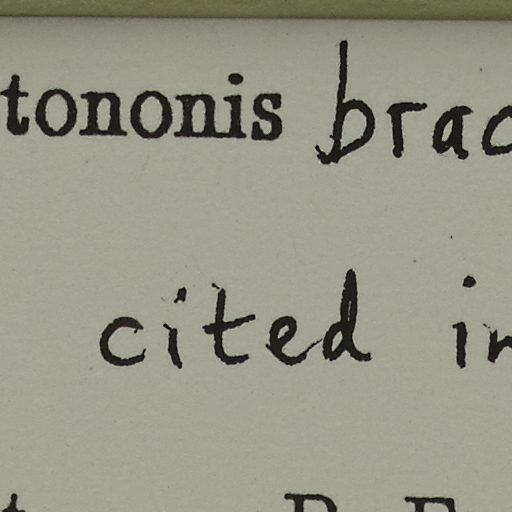 tononis brac
cited in